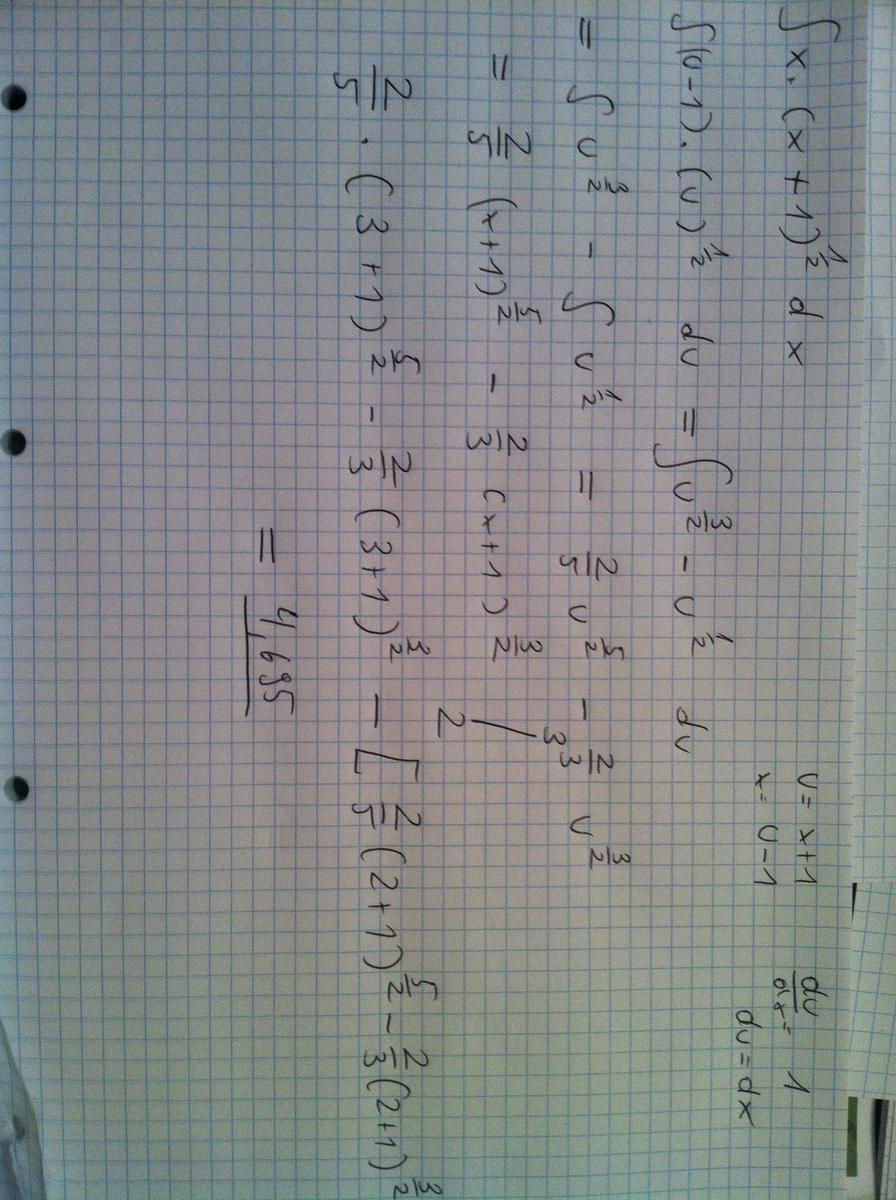 ∫ x · (x + 1)^{1/2} dx
u = x+1
x = u-1
du/dx = 1
du = dx
∫ (u-1) · (u)^{1/2} du = ∫ u^{3/2} - u^{1/2} du
= ∫ u^{3/2} - ∫ u^{1/2} = 2/5 u^{5/2} - 2/3 u^{3/2}
= 2/5 (x+1)^{5/2} - 2/3 (x+1)^{3/2} |_2^3
2/5 · (3+1)^{5/2} - 2/3 (3+1)^{3/2} - [2/5 (2+1)^{5/2} - 2/3 (2+1)^{3/2}
= 4,695